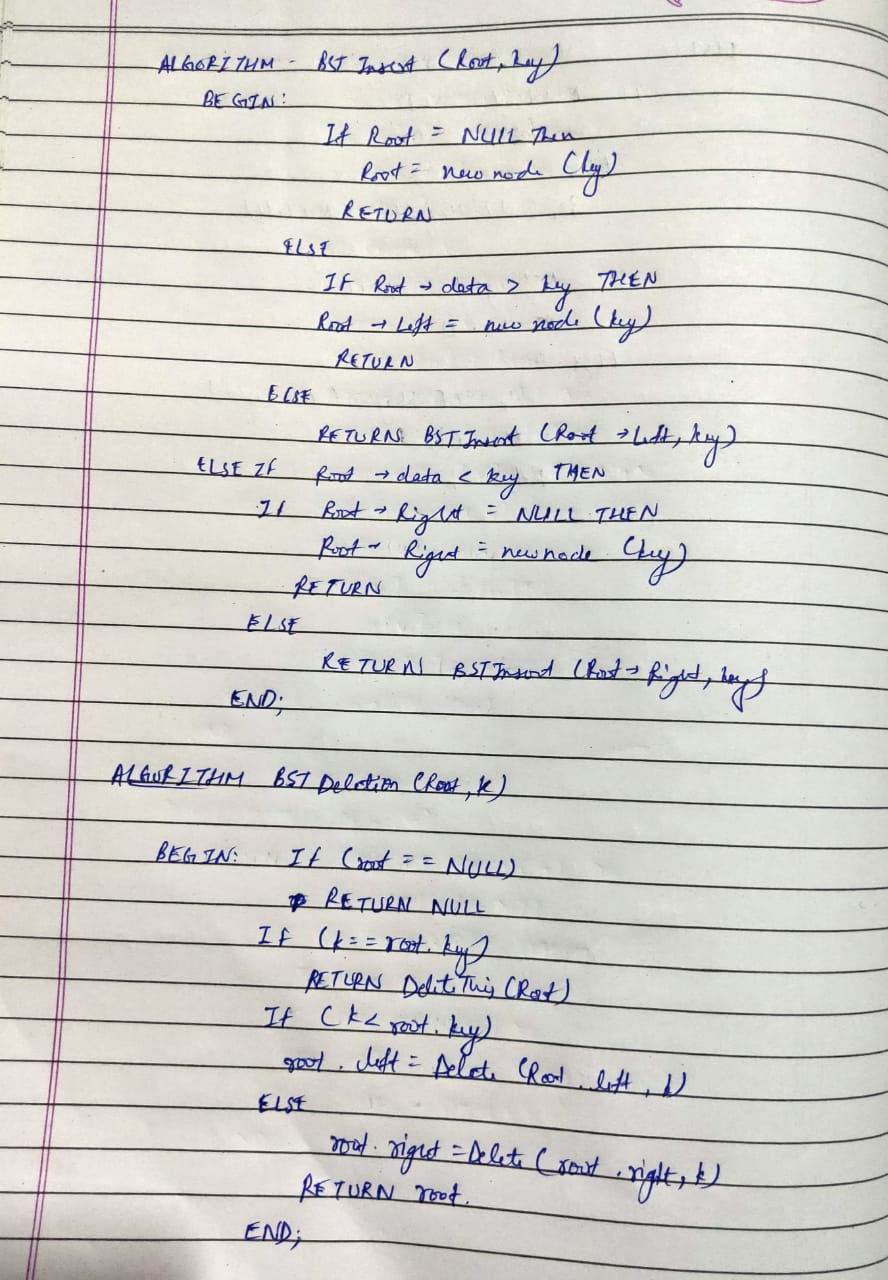 ALGORITHM - BST Insert (Root, key)
BEGIN:
If Root = NULL Then
Root = new node (key)
RETURN
ELSE
IF Root → data > key THEN
Root → Left = new node (key)
RETURN
ELSE
RETURN BST Insert (Root → Left, key)
ELSE If Root → data < key THEN
If Root → Right = NULL THEN
Root → Right = new node (key)
RETURN
ELSE
RETURN BST Insert (Root → Right, key)
END;
ALGORITHM BST Deletion (Root, k)
BEGIN: If (root == NULL)
RETURN NULL
If (k == root. key)
RETURN Delete This (Root)
If (k < root. key)
root. left = Delete (Root. left, k)
ELSE
root. right = Delete (root. right, k)
RETURN root.
END;